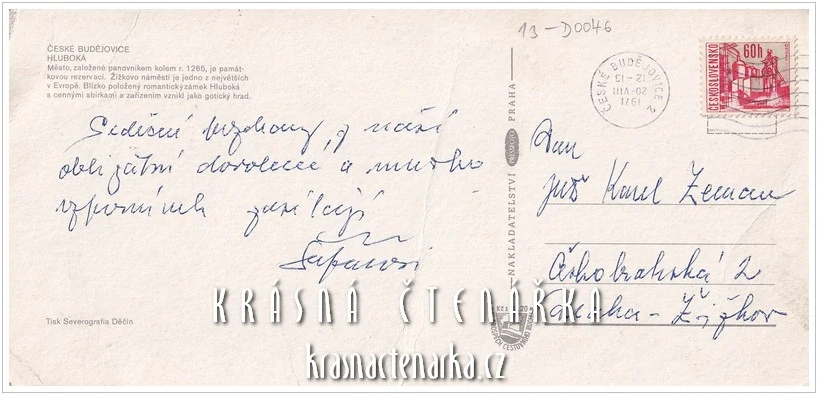 13-D0046
ČESKÉ BUDĚJOVICE
HLUBOKÁ
Město, založené panovníkem kolem r. 1265, je památ-
kovou rezervací. Žižkovo náměstí je jedno z největších
v Evropě. Blízko položený romantický zámek Hluboká
s cennými sbírkami a zařízením vznikl jako gotický hrad.
Srdečné pozdravy z naší
obligátní dovolené a mnoho
vzpomínek zasílají
Šafařovi
Tisk Severografia Děčín
NAKLADATELSTVÍ PRESSFOTO PRAHA
ČESKÉ BUDĚJOVICE 2
12-13
20.VIII
1971
ČESKOSLOVENSKO
60h
Pan
Karel Zeman
Českobratrská 2
Praha - Žižkov
KRÁSNÁ ČTENÁŘKA
krasnactenarka.cz